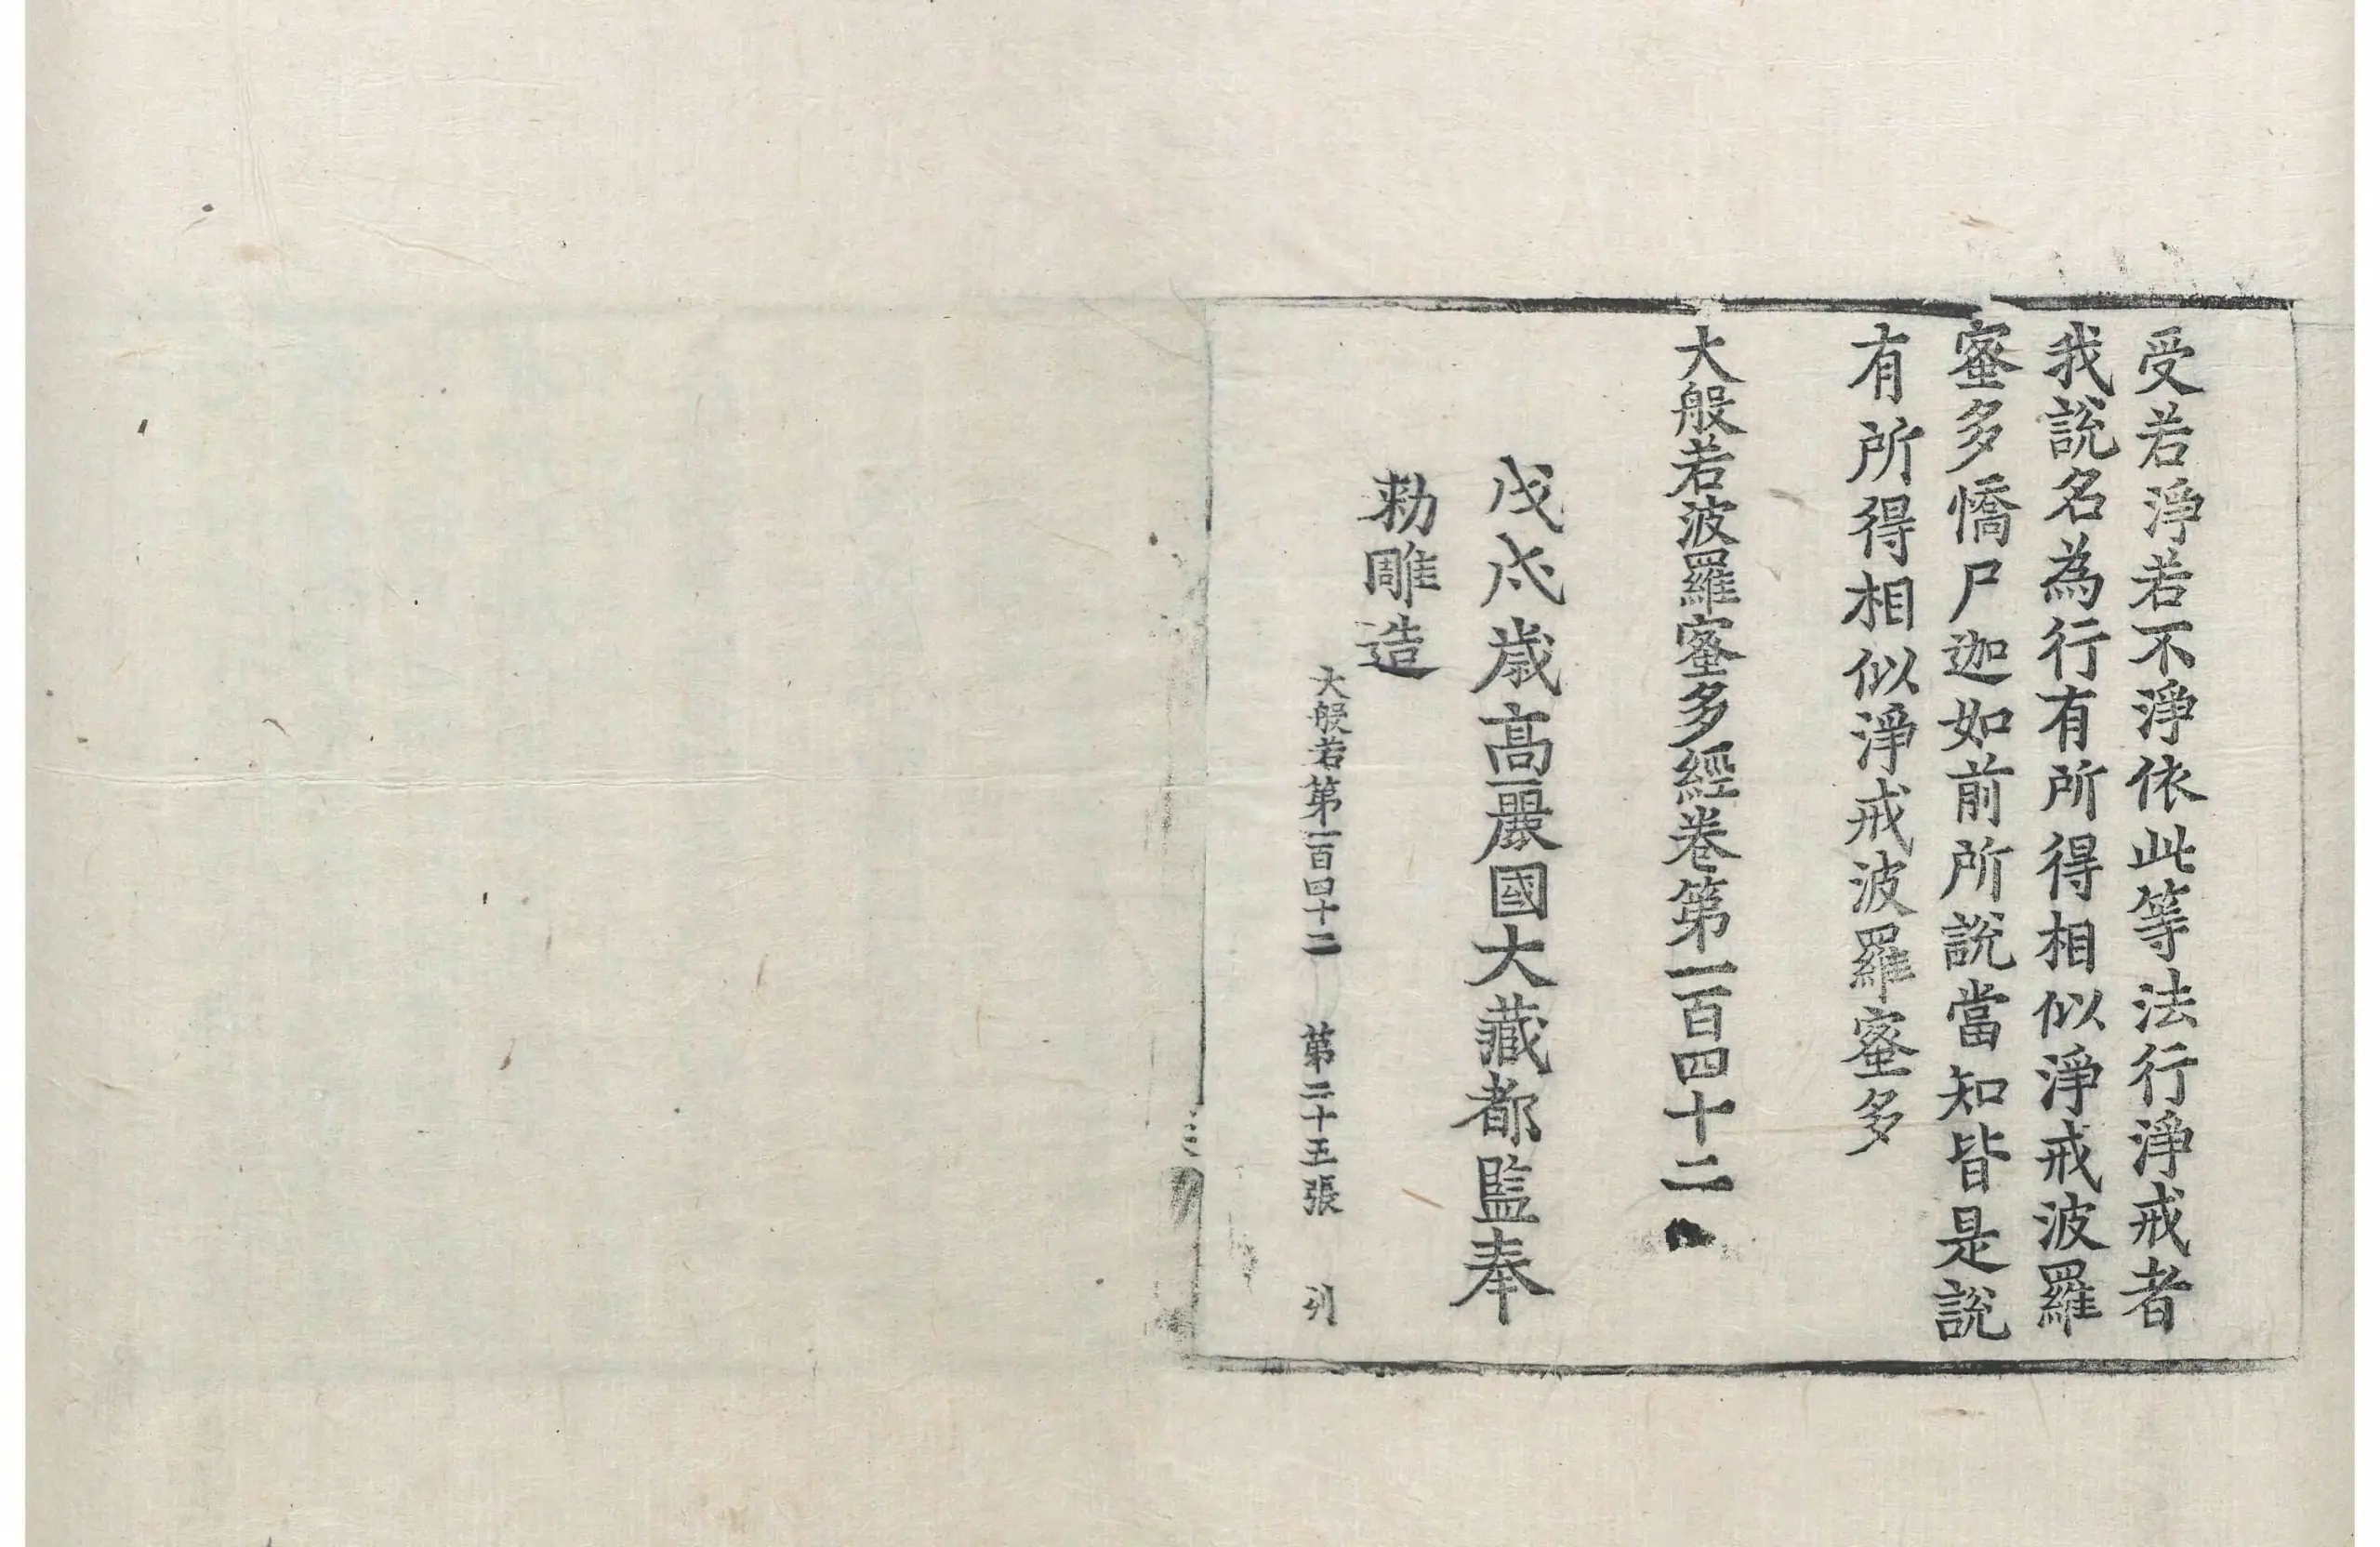 受若淨若不淨依此等法行淨戒者
我說名為行有所得相似淨戒波羅
蜜多憍尸迦如前所說當知皆是說
有所得相似淨戒波羅蜜多
大般若波羅蜜多經卷第一百四十二
戊戌歲高麗國大藏都監奉
勑雕造
大般若第一百四十二 第二十五張 列